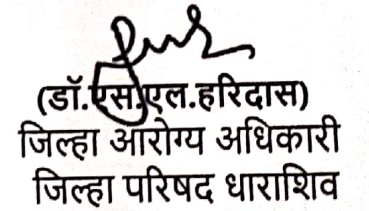 (डॉ.एस.एल.हरिदास)
जिल्हा आरोग्य अधिकारी
जिल्हा परिषद धाराशिव